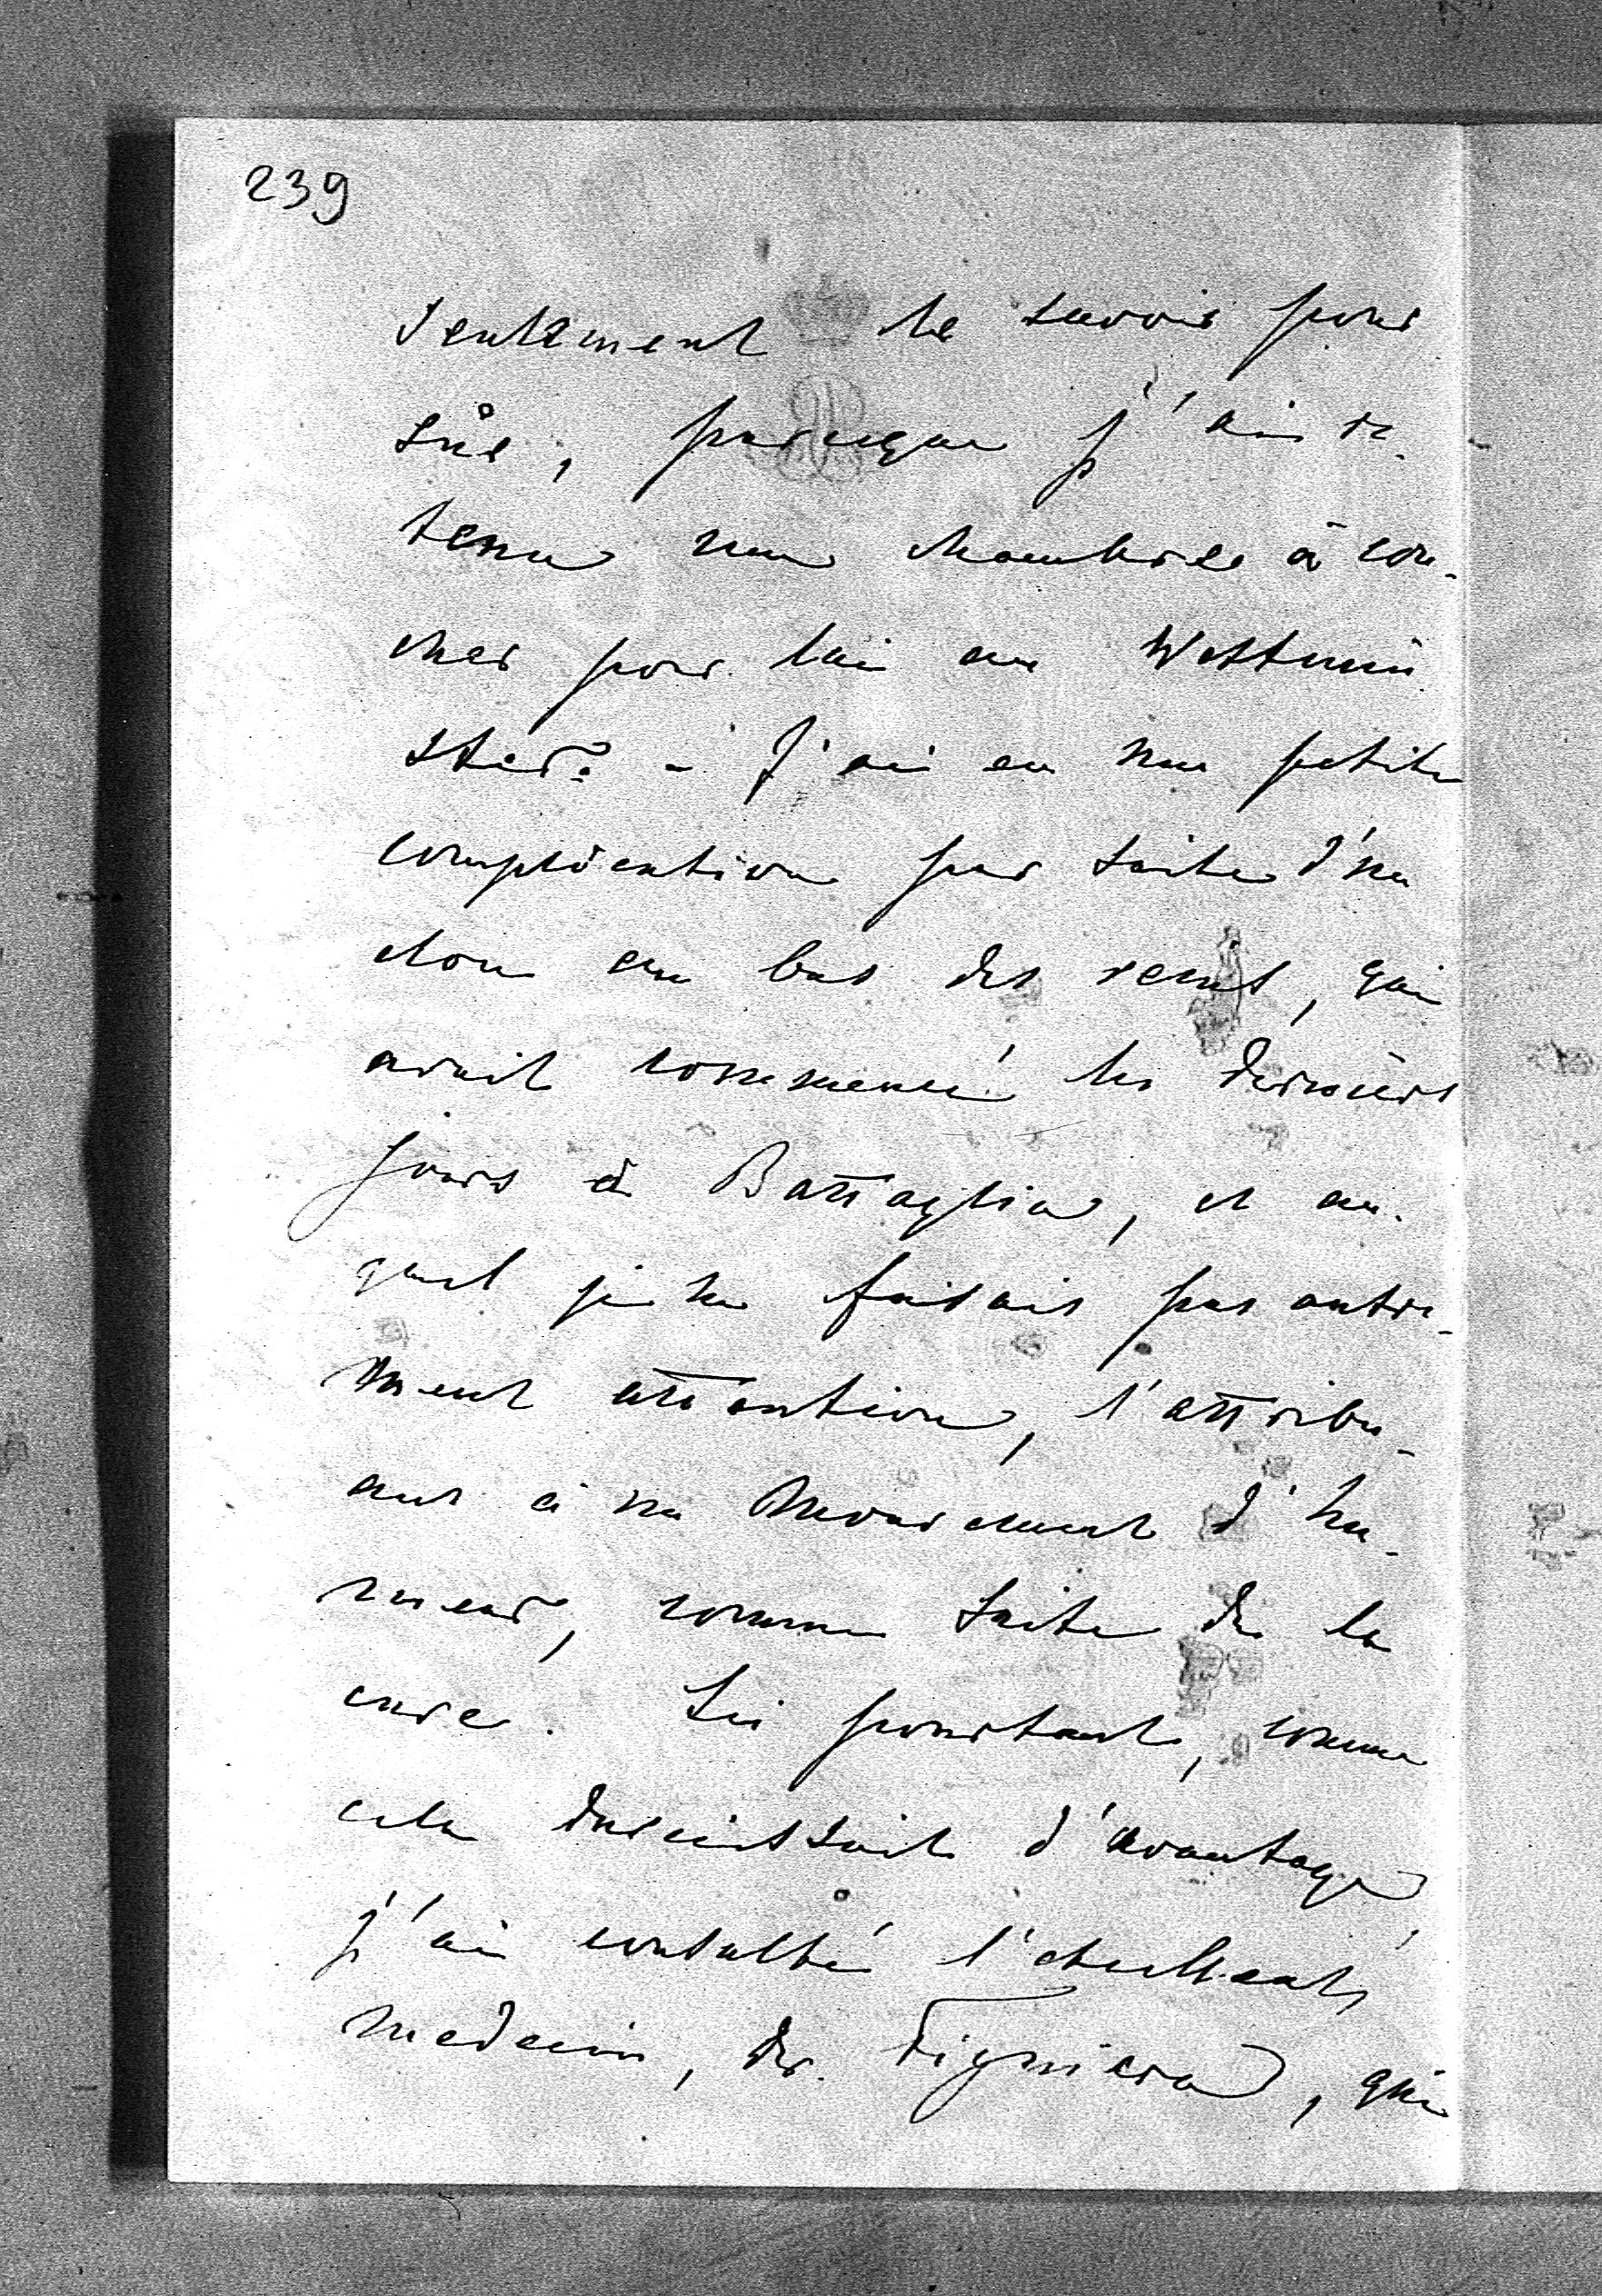 239
seulement le savoir pour
sûr, parceque j'ai re-
tenu une chambre à cou-
cher pour lui au Westmin
ster. - J'ai eu une petite
complication par suite d'un
clou au bas des reins, qui
avait commencé les derniers
jours à Battaglia, et au-
quel je ne faisais pas autre-
ment attention, l'attribu-
ant à un mouvement d'hu-
meur, comme suite de la
cure. Ici pourtant, comme
cela durcissait d'avantage,
j'ai consulté l'excellent
medecin, Dr. Figuiera, qui